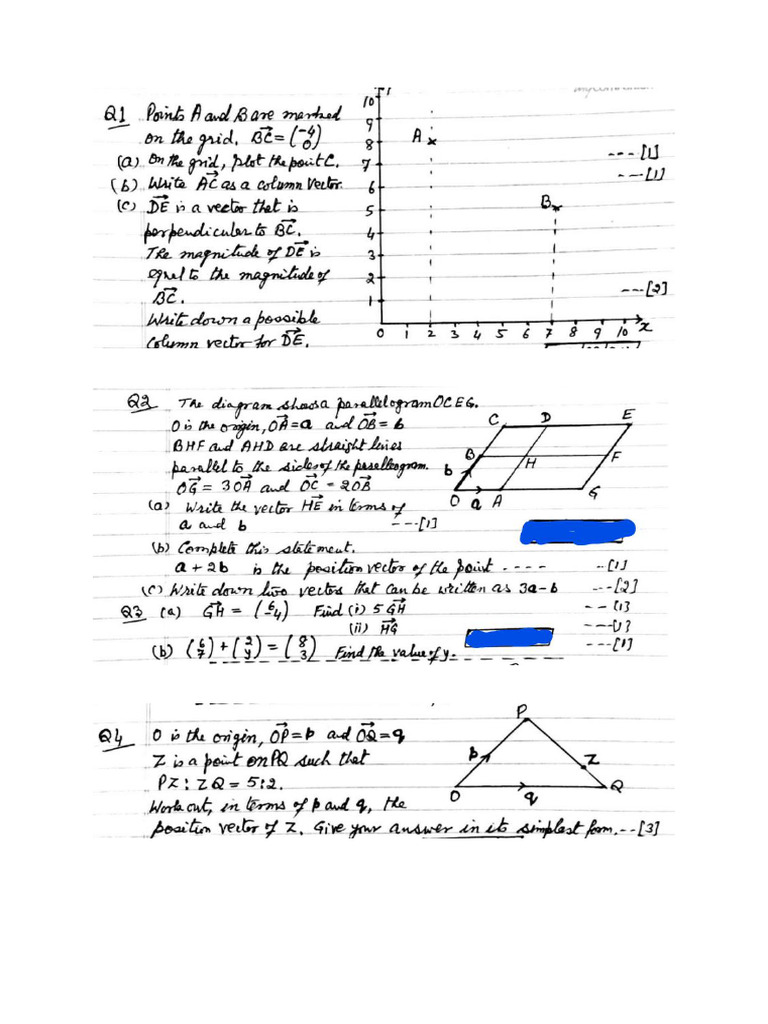 Q1 Points A and B are marked
on the grid. B͞C⃗ = (-4 0)
(a) On the grid, plot the point C. ---[1]
(b) Write AC⃗ as a column vector ---[1]
(c) DE⃗ is a vector that is
perpendicular to BC⃗.
The magnitude of DE⃗ is
eqnel to the magnitude of
BC⃗. ---[2]
Write down a possible
column vector for DE⃗.
10
9
8
7
6
5
4
3
2
1
A
B
0 1 2 3 4 5 6 7 8 9 10 x
Q2 The diagram shows a parallelogram OCEG.
O is the origin, OA⃗ = a and OB⃗ = b
BHF and AHD are straight lines
parallel to the sides of the parallelogram.
OG⃗ = 3OA⃗ and OC⃗ = 2OB⃗
(a) Write the vector HE⃗ in terms of
a and b ---[1]
(b) Complete this statement.
a + 2b is the position vector of the point ---- --[1]
(c) Write down two vectors that can be written as 3a-b ---[2]
C D E
B H F
b
O a A G
Q3 (a) GH⃗ = (6 -4) Find (i) 5GH⃗ ---[1]
(ii) HG⃗ ---[1]
(b) (6 7) + (2 y) = (8 3) Find the value of y. ---[1]
Q4 O is the origin, OP⃗ = p and OQ⃗ = q
Z is a point on PQ such that
PZ : ZQ = 5:2.
Work out, in terms of p and q, the
position vector of Z. Give your answer in its simplest form. --[3]
P
p
Z
O q Q